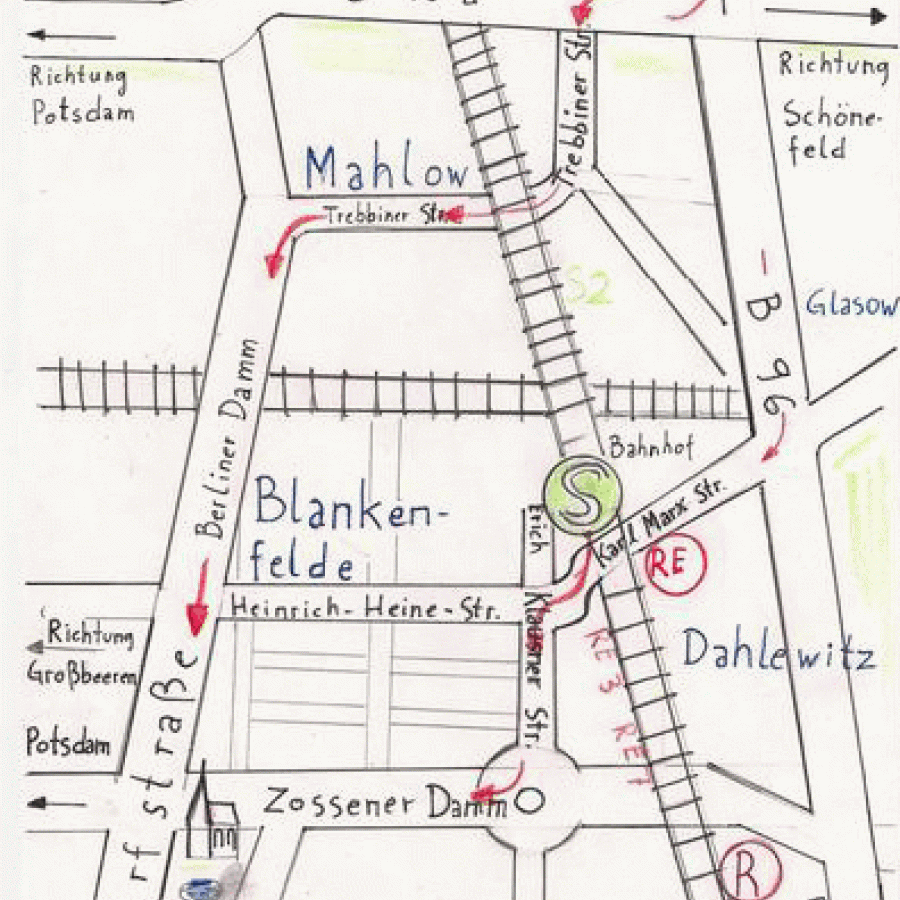 Richtung
Potsdam
Trebbiner Str.
Richtung
Schöne-
feld
Mahlow
Trebbiner Str.
S2
B 96
Glasow
Berliner Damm
Bahnhof
S
Blanken-
felde
Karl Marx Str.
RE
Erich Klausner Str.
Heinrich-Heine-Str.
Richtung
Großbeeren
Potsdam
RE 3 RE 7
Dahlewitz
rfstraße
Zossener Damm
R